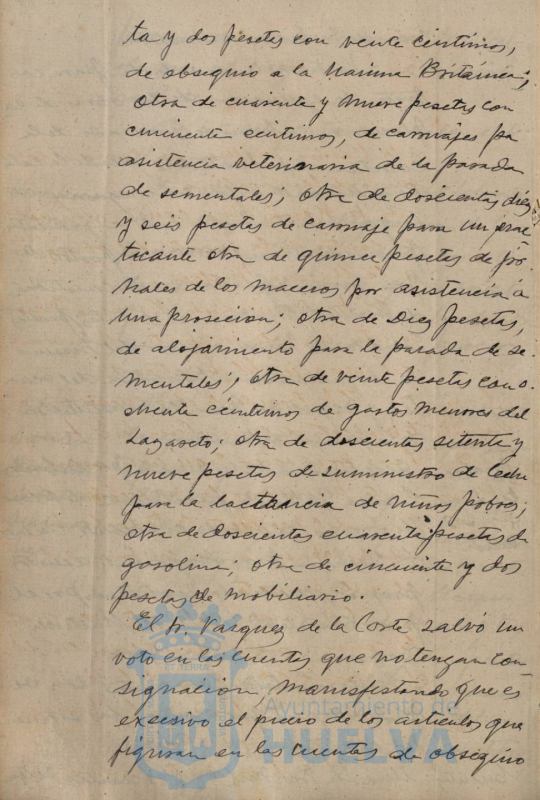 ta y dos pesetas con veinte centimos,
de obsequio a la Marina Británica;
otra de cuarenta y nueve pesetas con
cincuenta centimos, de carruajes pa
asistencia veterinaria de la parada
de sementales; otra de doscientas diez
y seis pesetas de carruaje para un prac
ticante otra de quince pesetas de jor
nales de los maceros por asistencia a
una prosecion; otra de Diez pesetas,
de alojamiento para la parada de se
mentales; otra de veinte pesetas con o
chenta centimos de gastos menores del
Lazareto; otra de doscientas setenta y
nueve pesetas de suministro de leche
para la lactancia de niños pobres;
otra de doscientas cuarenta pesetas de
gasolina; otra de cincuenta y dos
pesetas de mobiliario.
El Sr. Vazquez de la Corte salvó su
voto en las cuentas que no tengan con
signación, manifestando que es
excesivo el precio de los articulos que
figuran en las cuentas de obsequio
Ayuntamiento de
HUELVA